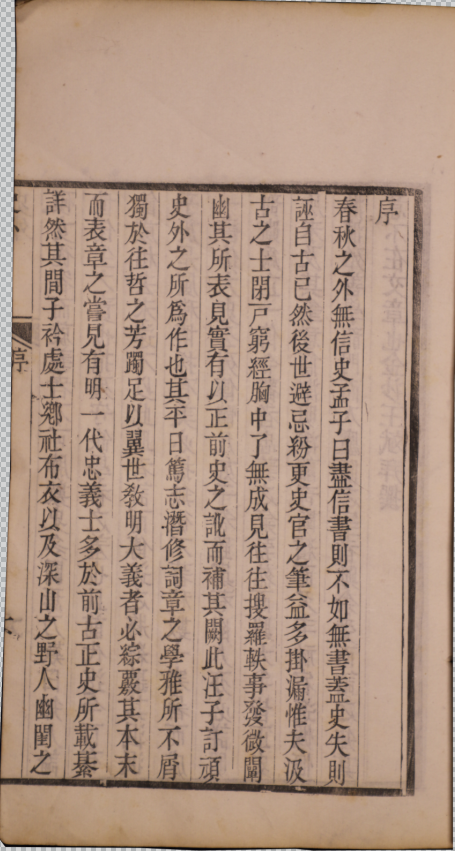 序
春秋之外無信史孟子曰盡信書則不如無書葢史失則
誣自古已然後世避忌粉更史官之筆益多掛漏惟夫汲
古之士閉戸窮經胸中了無成見往往搜羅軼事發微闡
幽其所表見實有以正前史之訛而補其闕此汪子訂頑
史外之所爲作也其平日篤志潛修詞章之學雅所不屑
獨於往哲之芳躅足以翼世敎明大義者必綜覈其本末
而表章之嘗見有明一代忠義士多於前古正史所載綦
詳然其間子衿處士鄉社布衣以及深山之野人幽閨之
序